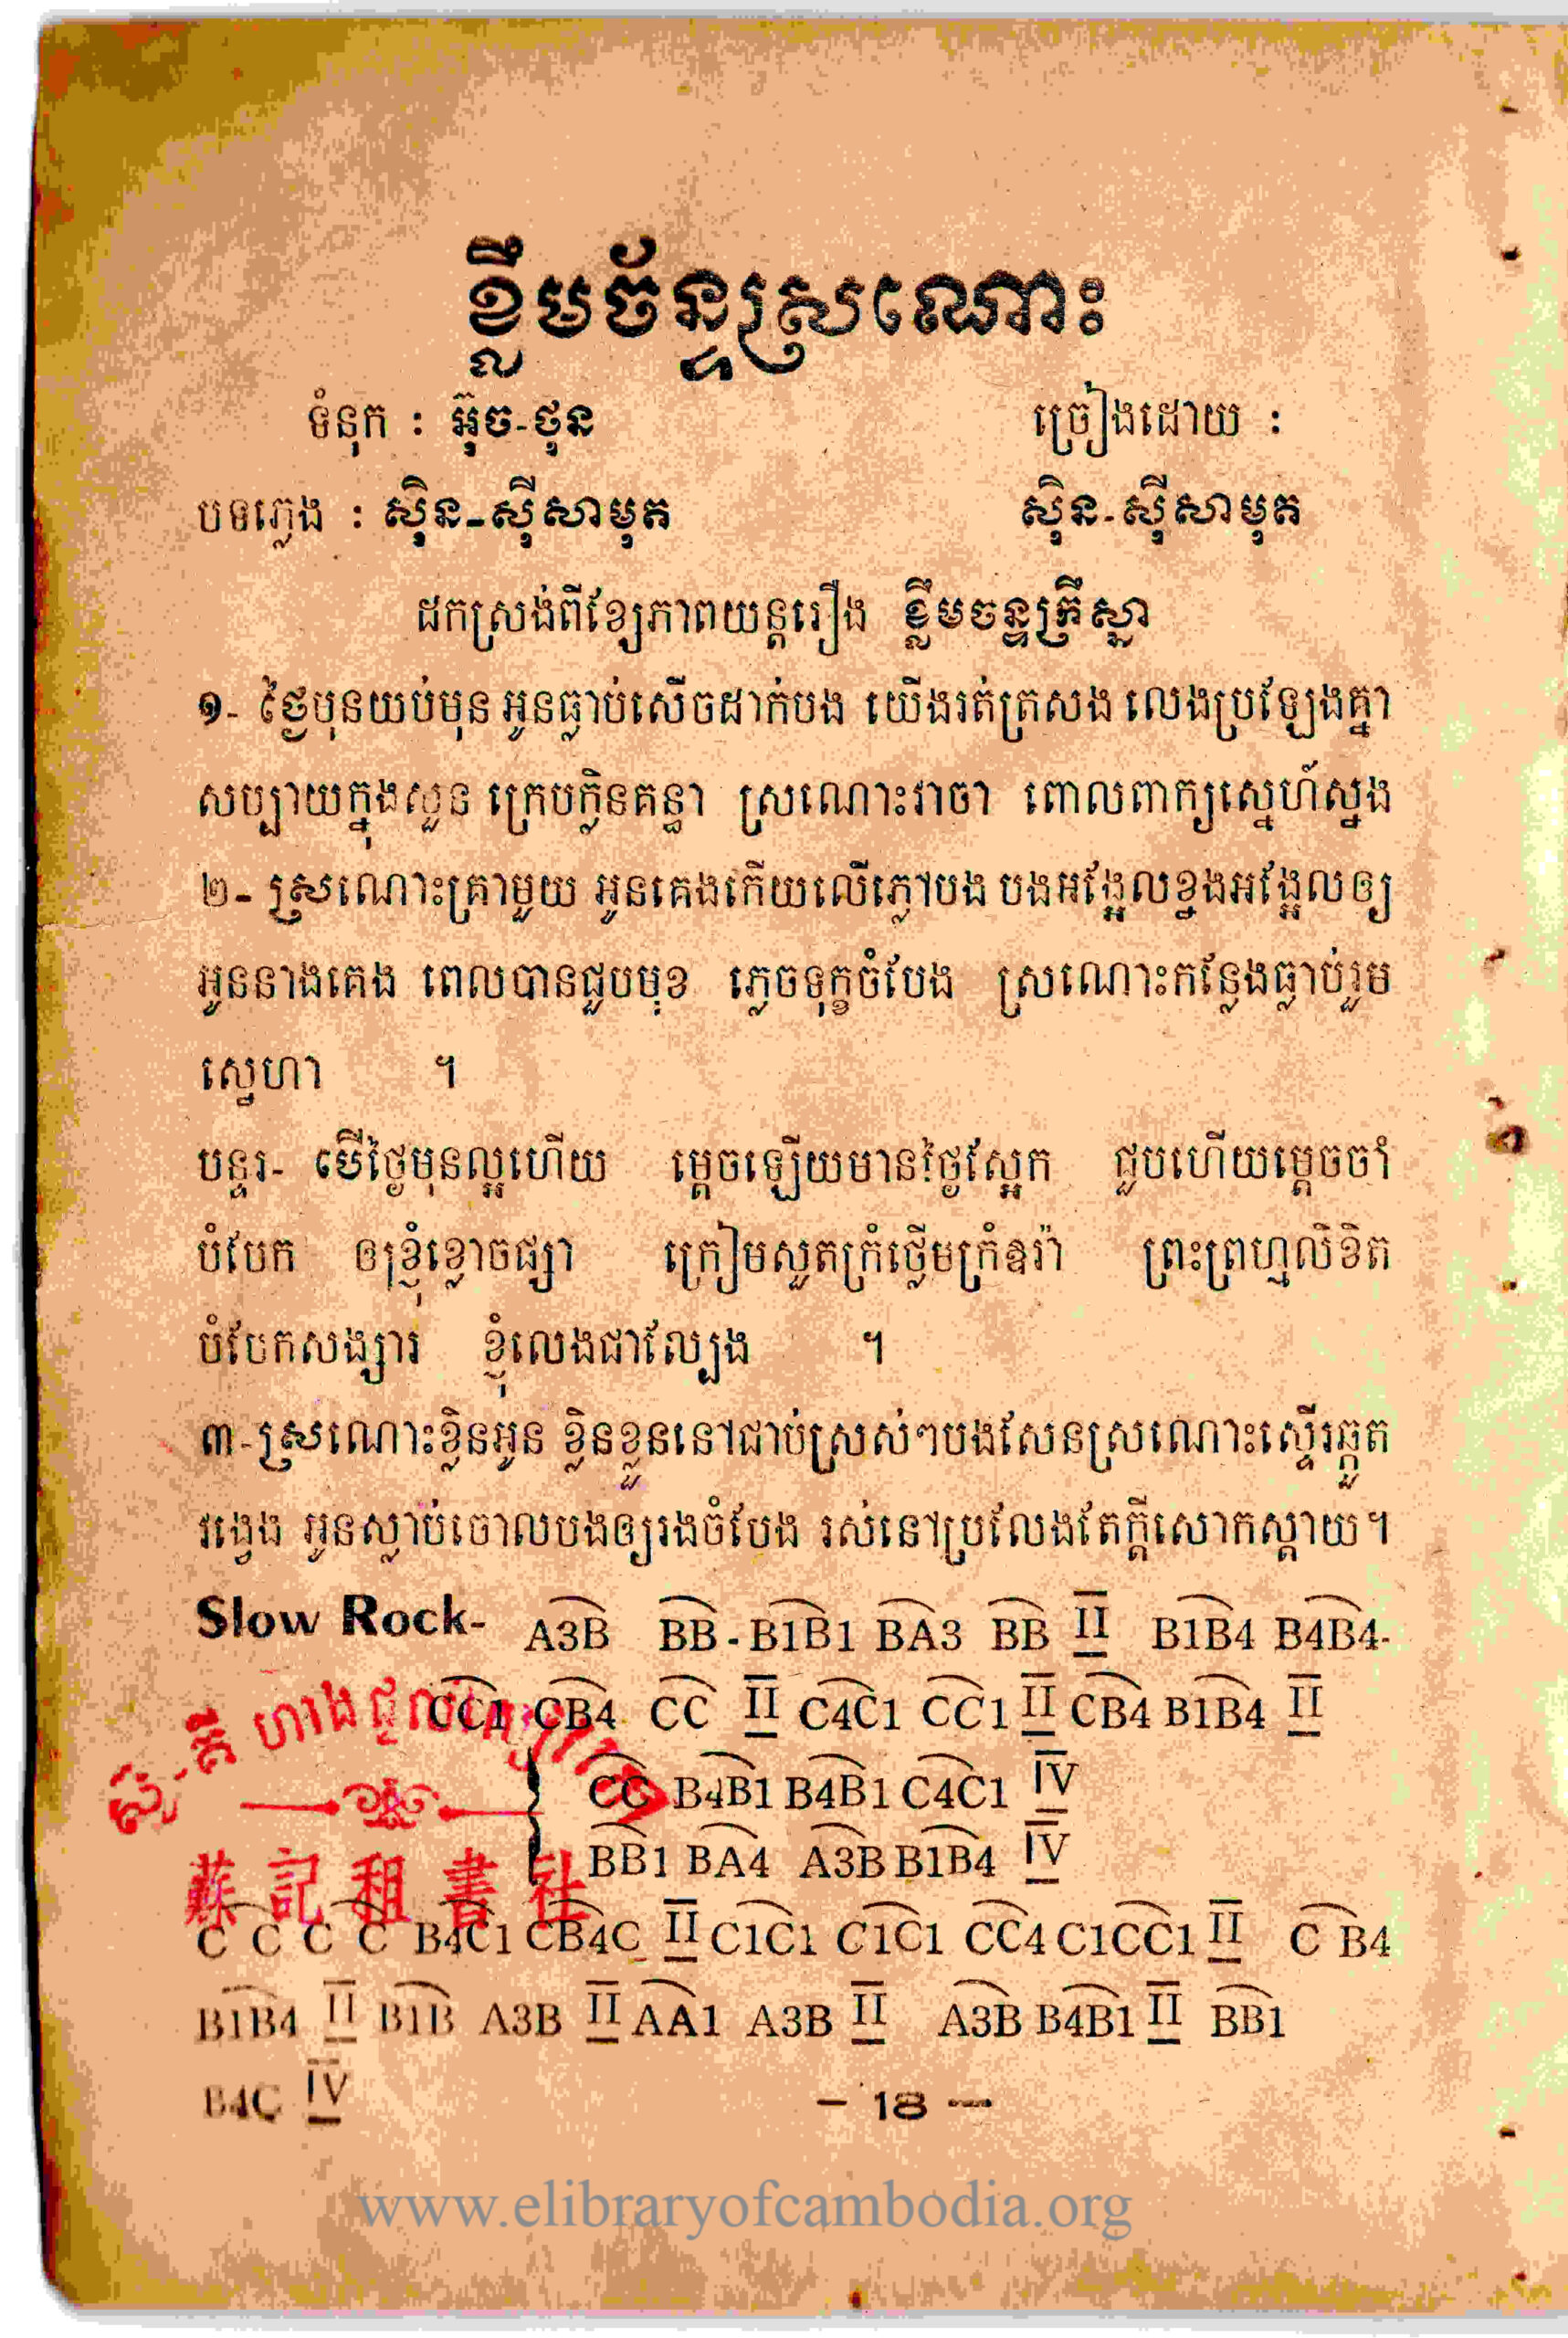 ខ្លឹមច័ន្ទស្រណោះ
ទំនុក : អ៊ុច-ថុន ច្រៀងដោយ :
បទភ្លេង : ស៊ិន-ស៊ីសាមុត ស៊ិន-ស៊ីសាមុត
ដកស្រង់ពីខ្សែភាពយន្តរឿង ខ្លឹមចន្ទគ្រីស្នា
១- ថ្ងៃមុនយប់មុន អូនធ្លាប់សើចដាក់បង យើងរត់ត្រសង លេងប្រឡែងគ្នា
សប្បាយក្នុងសួន ក្រេបក្លិនគន្ធា ស្រណោះវាចា ពោលពាក្យស្នេហ៍ស្នង
២- ស្រណោះគ្រាមួយ អូនគេងកើយលើភ្លៅបង បងអង្អែលខ្នងអង្អែលឲ្យ
អូននាងគេង ពេលបានជួបមុខ ភ្លេចទុក្ខចំបែង ស្រណោះកន្លែងធ្លាប់រួម
ស្នេហា ។
បន្ទរ- បើថ្ងៃមុនល្អហើយ ម្ដេចឡើយមានថ្ងៃស្អែក ជួបហើយម្ដេចចាំ
បំបែក ឲ្យខ្ញុំខ្លោចផ្សា ក្រៀមសួតក្រំថ្លើមក្រំឧរ៉ា ព្រះព្រហ្មលិខិត
បំបែកសង្សារ ខ្ញុំលេងជាល្បែង ។
៣-ស្រណោះខ្លិនអូន ខ្លិនខ្លួននៅជាប់ស្រស់ៗបងសែនស្រណោះស្ទើរឆ្កួត
វង្វេង អូនស្លាប់ចោលបងឲ្យរងចំបែង រស់នៅប្រលែងតែក្ដីសោកស្ដាយ។
Slow Rock- A3B BB - B1B1 BA3 BB II B1B4 B4B4-
CC1 CB4 CC II C4C1 CC1 II CB4 B1B4 II
CC B4B1 B4B1 C4C1 IV
BB1 BA4 A3B B1B4 IV
蘇記租書社
C C C C B4C1 CB4C II C1C1 C1C1 CC4 C1CC1 II C B4
B1B4 II B1B A3B II AA1 A3B II A3B B4B1 II BB1
B4C IV
- 18 -
www.elibraryofcambodia.org